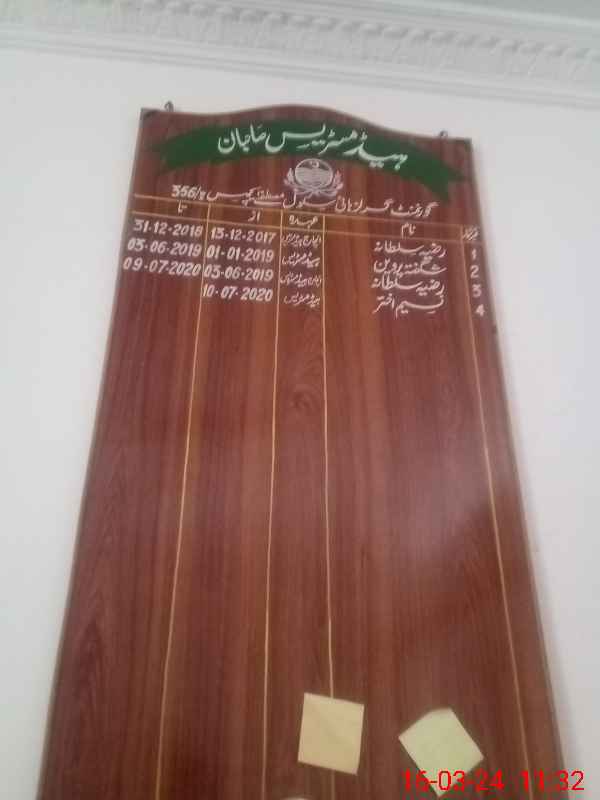 ہیڈ مسٹریس صاحبان
گورنمنٹ گرلز ہائی سکول 356/
نام عہدہ از تا
1 رضیہ سلطانہ انچارج ہیڈ مسٹریس 13-12-2017 31-12-2018
2 شگفتہ پروین ہیڈ مسٹریس 01-01-2019 03-06-2019
3 رضیہ سلطانہ انچارج ہیڈ مسٹریس 03-06-2019 09-07-2020
4 نسیم اختر ہیڈ مسٹریس 10-07-2020
16-03-24 11:32